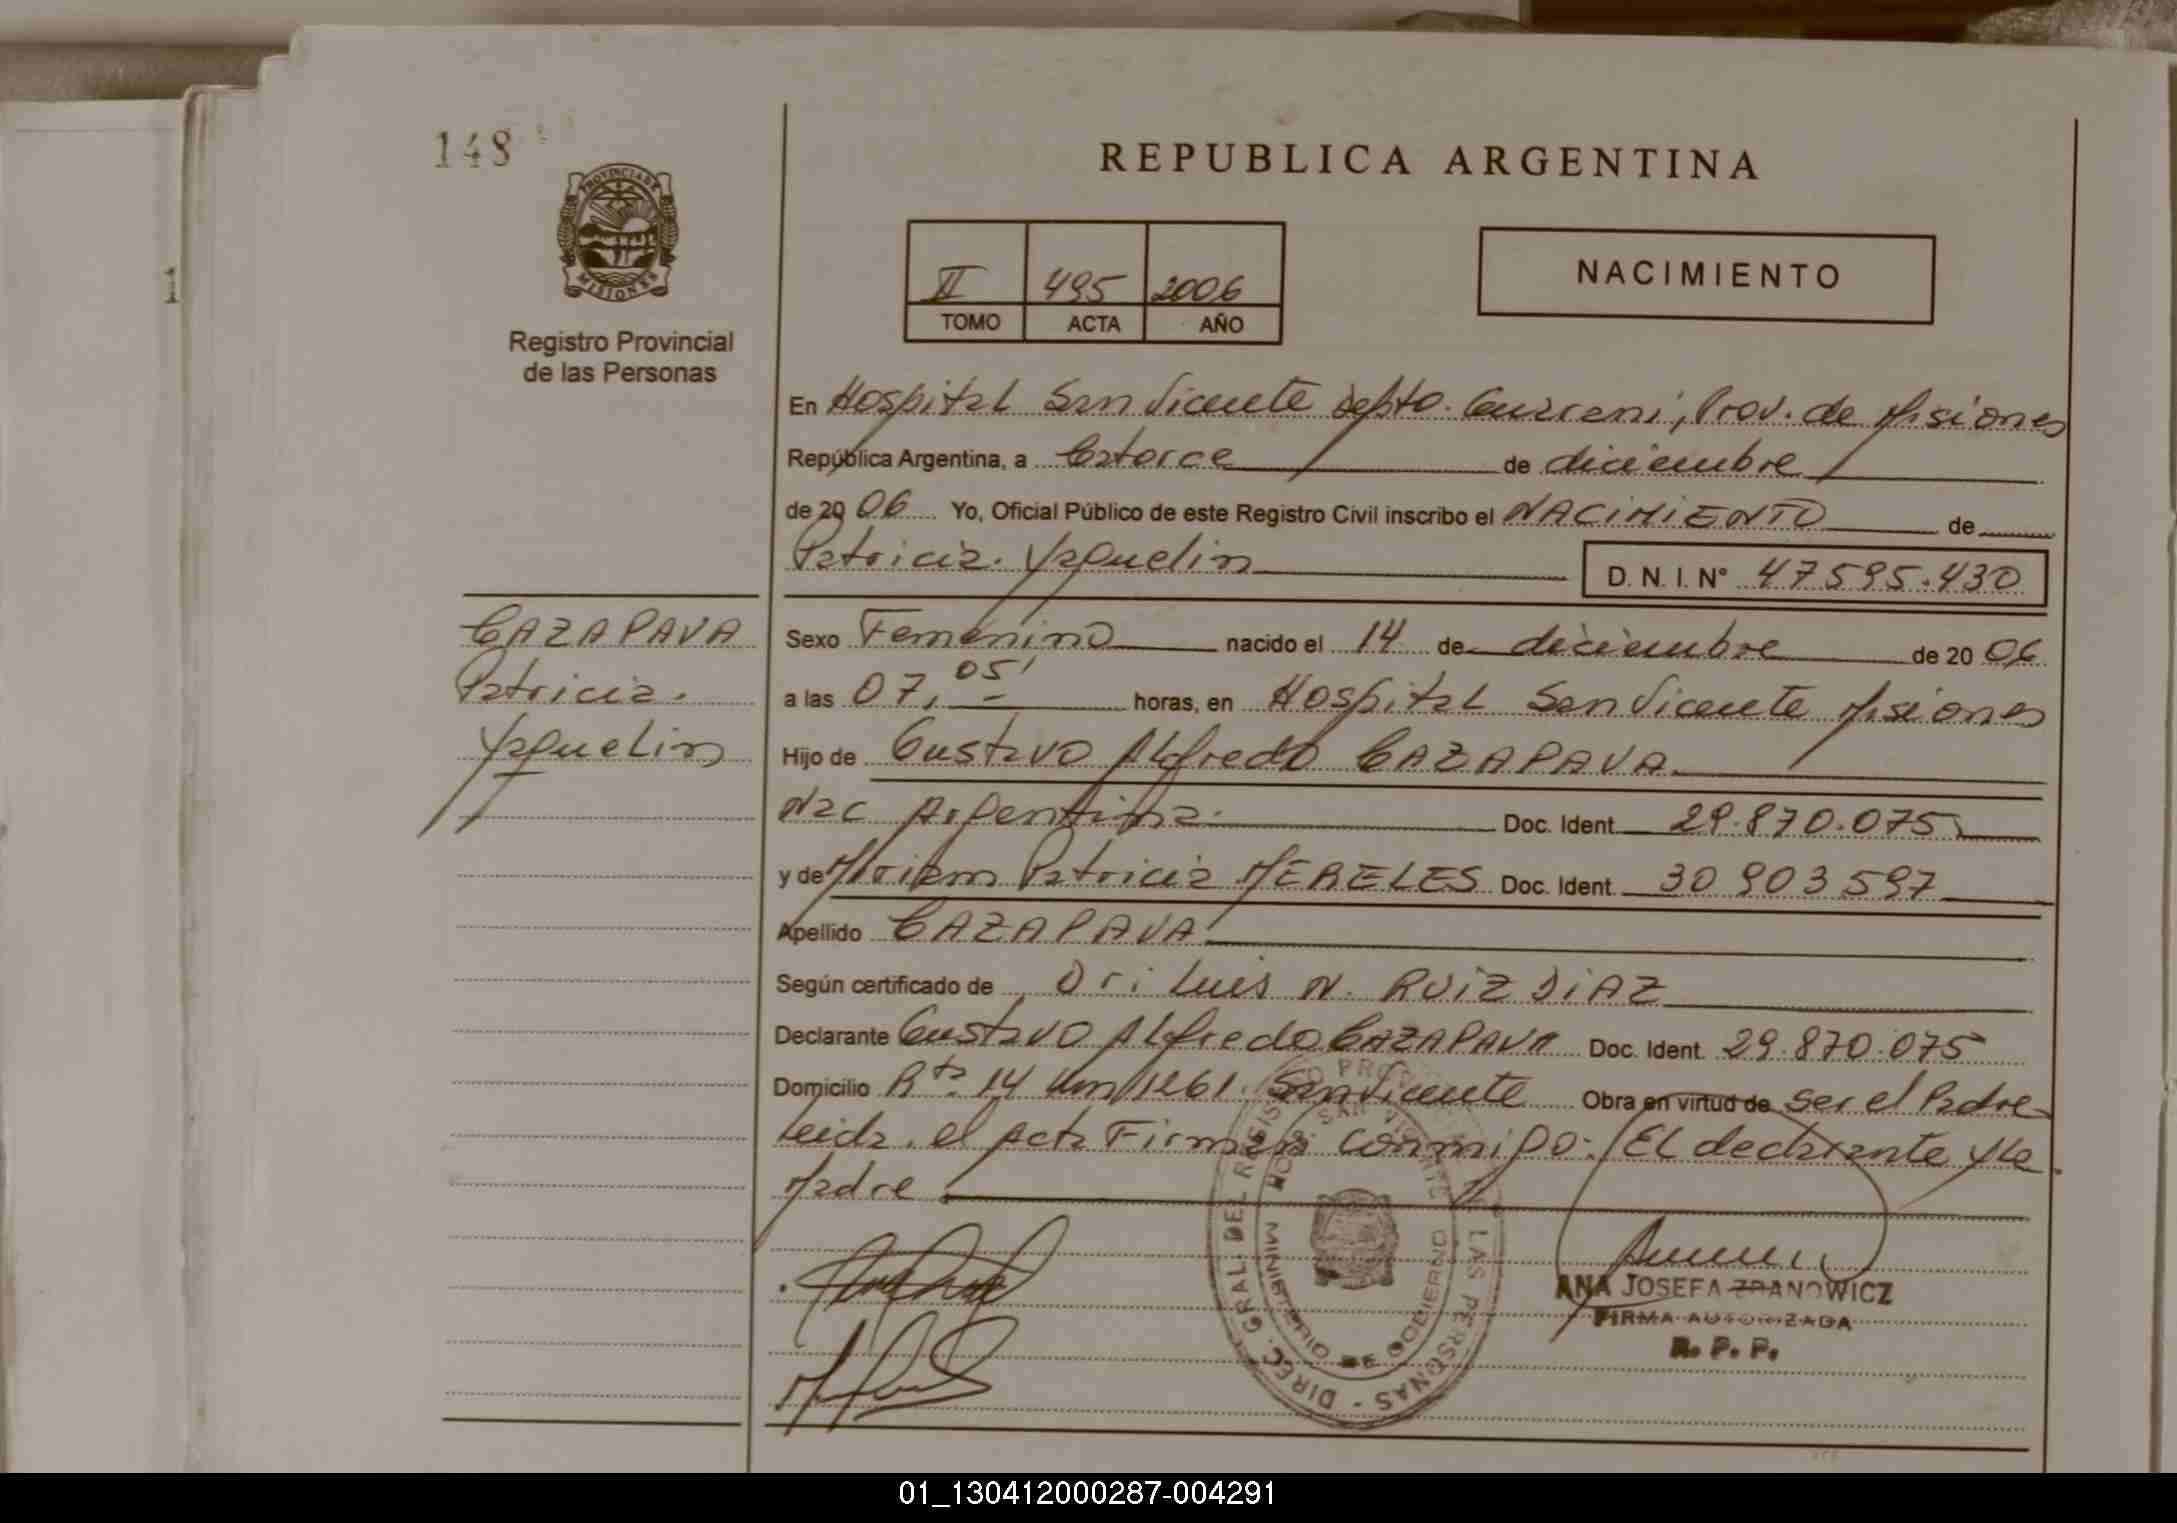 148
PROVINCIA DE
MISIONES
Registro Provincial
de las Personas
REPUBLICA ARGENTINA
II 495 2006
TOMO ACTA AÑO
NACIMIENTO
En Hospital San Vicente Depto. Guarani, Prov. de Misiones
República Argentina, a Catorce de diciembre
de 2006 Yo, Oficial Público de este Registro Civil inscribo el NACIMIENTO de
Patricia Yaquelin D. N. I. N° 47595.430
CAZAPAVA
Patricia
Yaquelin
Sexo Femenino nacido el 14 de diciembre de 2006
a las 07,05' horas, en Hospital San Vicente Misiones
Hijo de Gustavo Alfredo CAZAPAVA
Nac Argentina Doc. Ident. 29.870.075
y de Miriam Patricia MERELES Doc. Ident. 30903597
Apellido CAZAPAVA
Según certificado de Dr: Luis N. RUIZ DIAZ
Declarante Gustavo Alfredo CAZAPAVA Doc. Ident. 29.870.075
Domicilio Rta 14 Km 1261 San Vicente Obra en virtud de ser el Padre
Leida el Acta Firman conmigo: El declarante y la
Madre
DIREC. GRAL. DEL REGISTRO PROVINCIAL DE LAS PERSONAS
HOSP. SAN VICENTE
MINISTERIO DE GOBIERNO
ANA JOSEFA ZDANOWICZ
FIRMA AUTORIZADA
R. P. P.
01_130412000287-004291